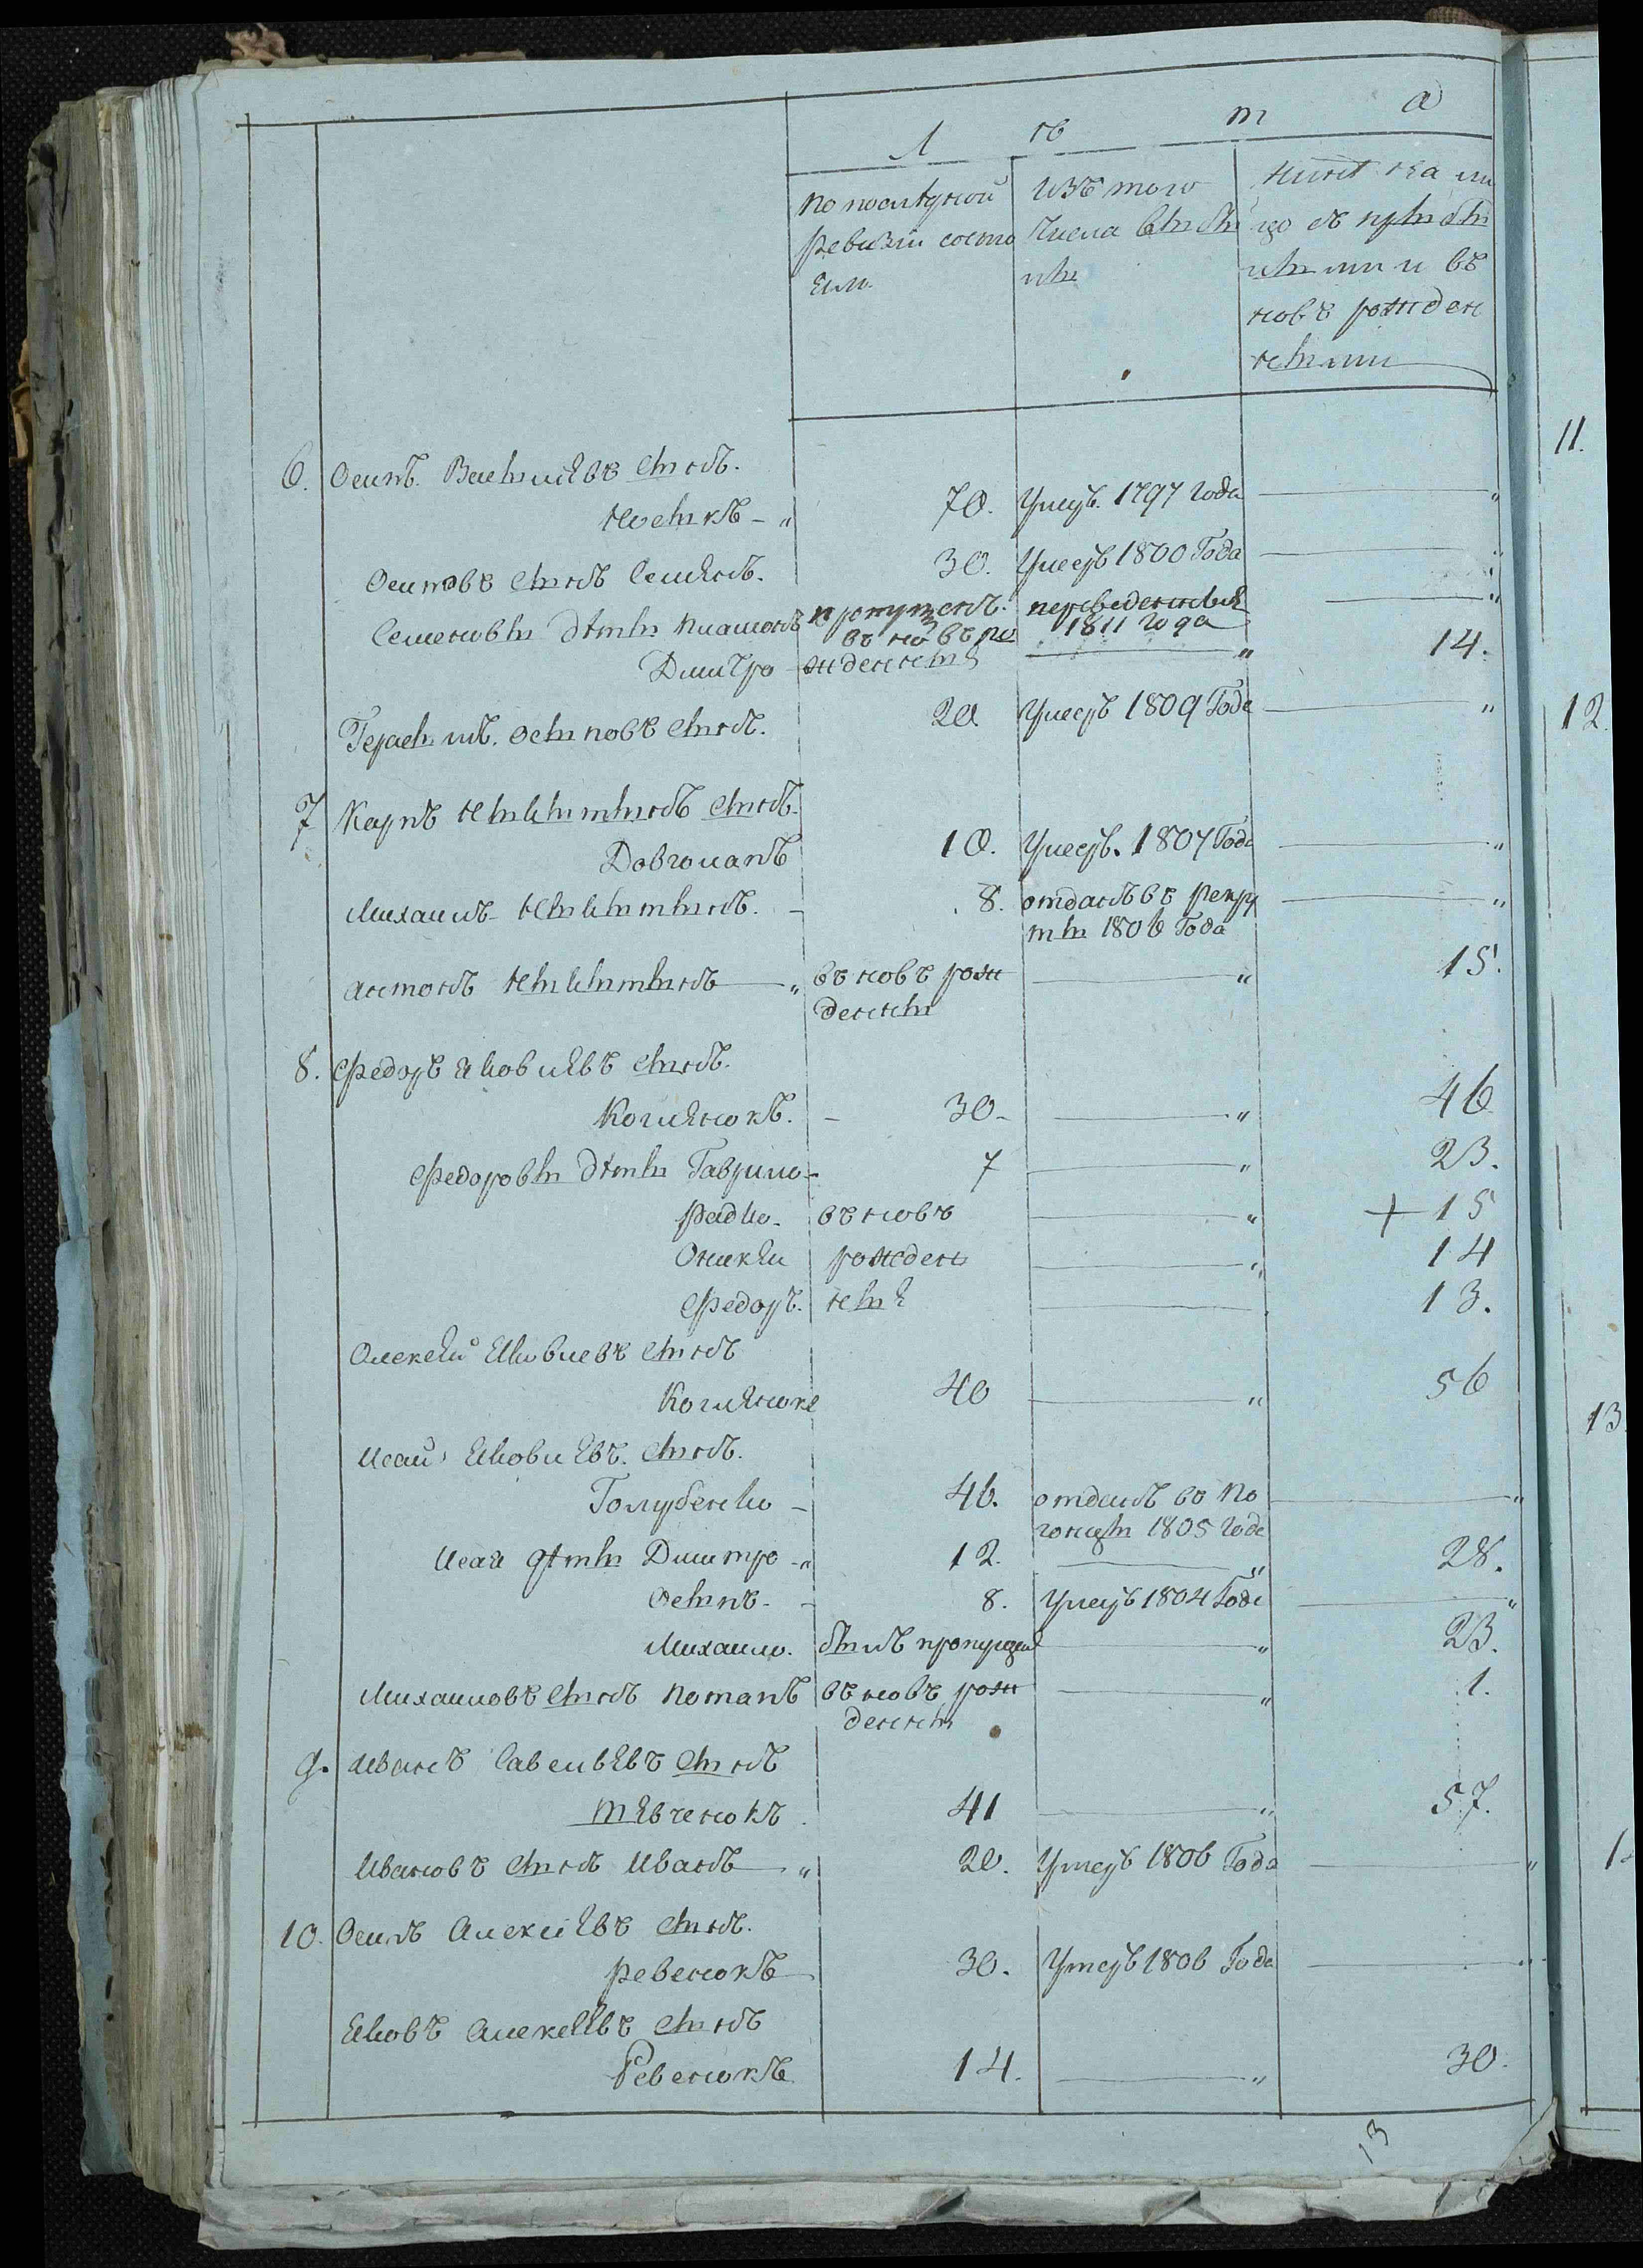 Л ѣ т а
По последней
ревизiи состо
яло
Изъ того
числа выбы
ло
Ныне на ли
цо съ прибы
лыми и въ
новъ рожден
ными
6. Осипъ Васильевъ сынъ
70. Умеръ 1797 года
Осиповъ сынъ Семенъ.
30. Умеръ 1800 Года
Семеновы дети
пропущенъ.
1811 года
въ новъ ро
Дмитро
жденныя
14.
Герасимъ Осиповъ сынъ.
20 Умеръ 1809 Года
7 Карпъ Никитинъ сынъ
Довгопапъ
10. Умеръ 1807 Года
Михаилъ Никитинъ.
8. отданъ въ рекру
ты 1806 Года
Антонъ Никитинъ
въ новъ рож
денны
15.
8. Федоръ Яковлевъ сынъ.
30
46
Федоровы дети Гаврило
7
23.
Радко
въ новъ
+ 15
Оникiй
рожден
14
Федоръ.
ныя
13.
Олексей Яковлевъ сынъ
40
56
Исай Яковлевъ сынъ.
Голубенко
46. отданъ въ по
1805 Года
Исая дети Дмитро
12.
28.
Осипъ
8. Умеръ 1804 Года
Михайло.
былъ пропущен
23.
Михайловъ сынъ Потапъ
въ новъ рож
денны
1.
9. Иванъ Савельевъ сынъ
Шевченюкъ
41
57.
Ивановъ сынъ Иванъ
20. Умеръ 1806 Года
10. Осипъ Алексеевъ сынъ.
Ревенюкъ
30. Умеръ 1806 Года
Яковъ Алексеевъ сынъ
Ревенюкъ
14.
30.
13
11.
12.
13.